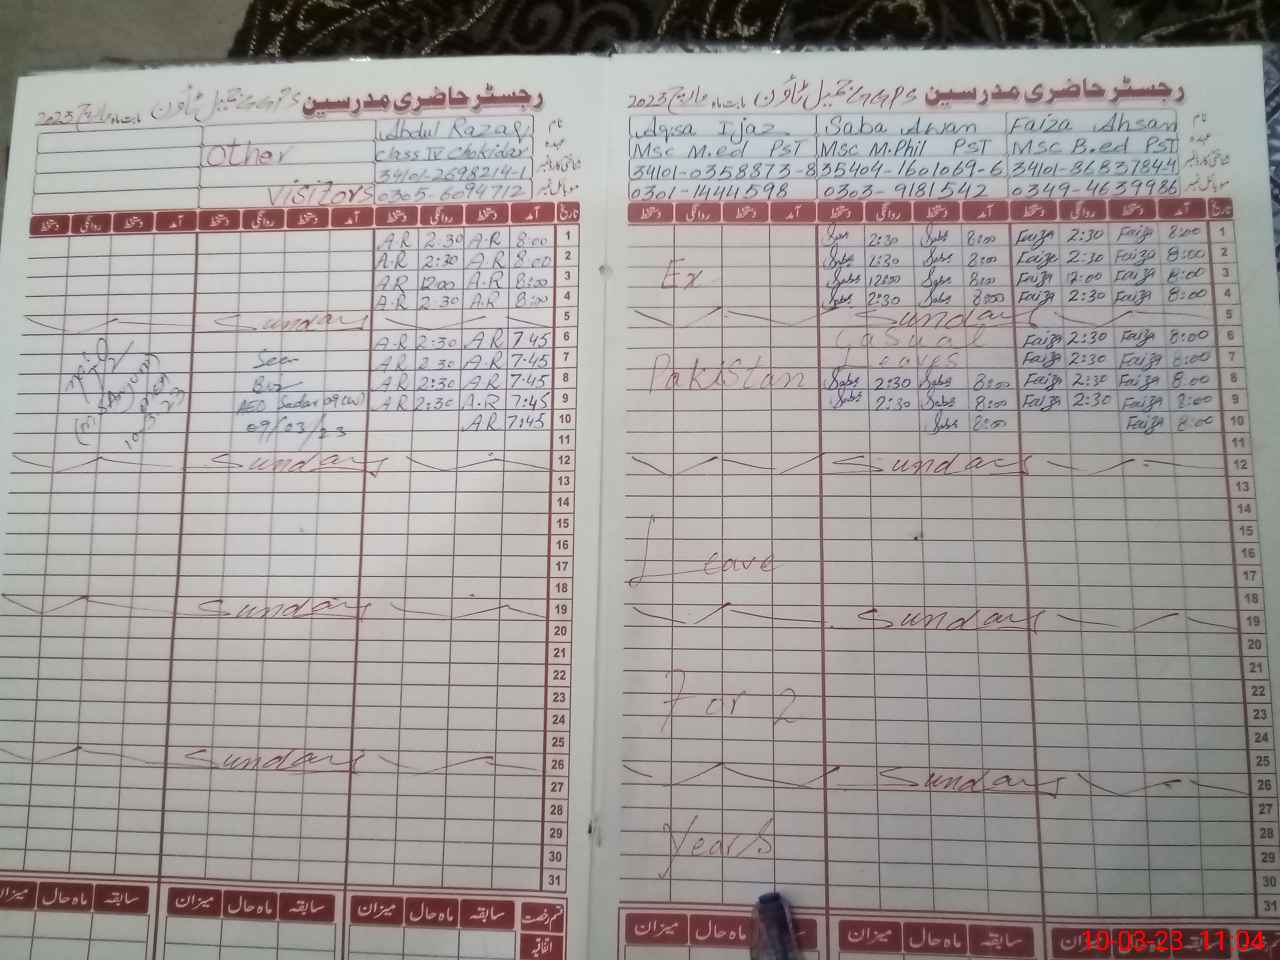 رجسٹر حاضری مدرسین GGPS جمیل ٹاؤن بابت ماہ مارچ 2023
نام Abdul Razaq
عہدہ class IV Chokidar Other
شناختی کارڈ نمبر 34101-2698214-1
موبائل نمبر 0305-6094712 Visitors
تاریخ آمد دستخط روانگی دستخط آمد دستخط روانگی دستخط آمد دستخط روانگی دستخط
1 8:00 A.R 2:30 A.R
2 8:00 A.R 2:30 A.R
3 8:00 A.R 12:00 A.R
4 8:00 A.R 2:30 A.R
5 Sunday
6 7.45 A.R 2:30 A.R
7 7.45 A.R 2:30 A.R Seen
8 7.45 A.R 2:30 A.R
9 7:45 A.R 2:30 A.R AEO Sadar
10 7:45 A.R 09/03/23
10-3-23
11
12 Sunday
13
14
15
16
17
18
19 Sunday
20
21
22
23
24
25
26 Sunday
27
28
29
30
31
قسم رخصت سابقہ ماہ حال میزان سابقہ ماہ حال میزان سابقہ ماہ حال میزان
اتفاقیہ
رجسٹر حاضری مدرسین GGPS جمیل ٹاؤن بابت ماہ مارچ 2023
نام Faiza Ahsan Saba Awan Aqsa Ijaz
عہدہ Msc B.ed PST MSC M.Phil PST Msc M.ed PST
شناختی کارڈ نمبر 34101-8683784-4 35404-1601069-6 34101-0358873-8
موبائل نمبر 0349-4639986 0303-9181542 0301-1444598
تاریخ آمد دستخط روانگی دستخط آمد دستخط روانگی دستخط آمد دستخط روانگی دستخط
1 8:00 Faiza 2:30 Faiza 8:00 Saba 2:30 Saba
2 8:00 Faiza 2:30 Faiza 8:00 Saba 2:30 Saba
3 8:00 Faiza 12:00 Faiza 8:00 Saba 12:00 Saba Ex
4 8:00 Faiza 2:30 Faiza 8:00 Saba 2:30 Saba
5 Sunday
6 8:00 Faiza 2:30 Faiza Casual
7 8:00 Faiza 2:30 Faiza Leaves
8 8:00 Faiza 2:30 Faiza 8:00 Saba 2:30 Saba Pakistan
9 8:00 Faiza 2:30 Faiza 8:00 Saba 2:30 Saba
10 8:00 Faiza 8:00 Saba
11
12 Sunday
13
14
15
16 Leave
17
18
19 Sunday
20
21
22
23 For 2
24
25
26 Sunday
27
28
29 Years
30
31
سابقہ ماہ حال میزان سابقہ ماہ حال میزان
10-03-23 11:04